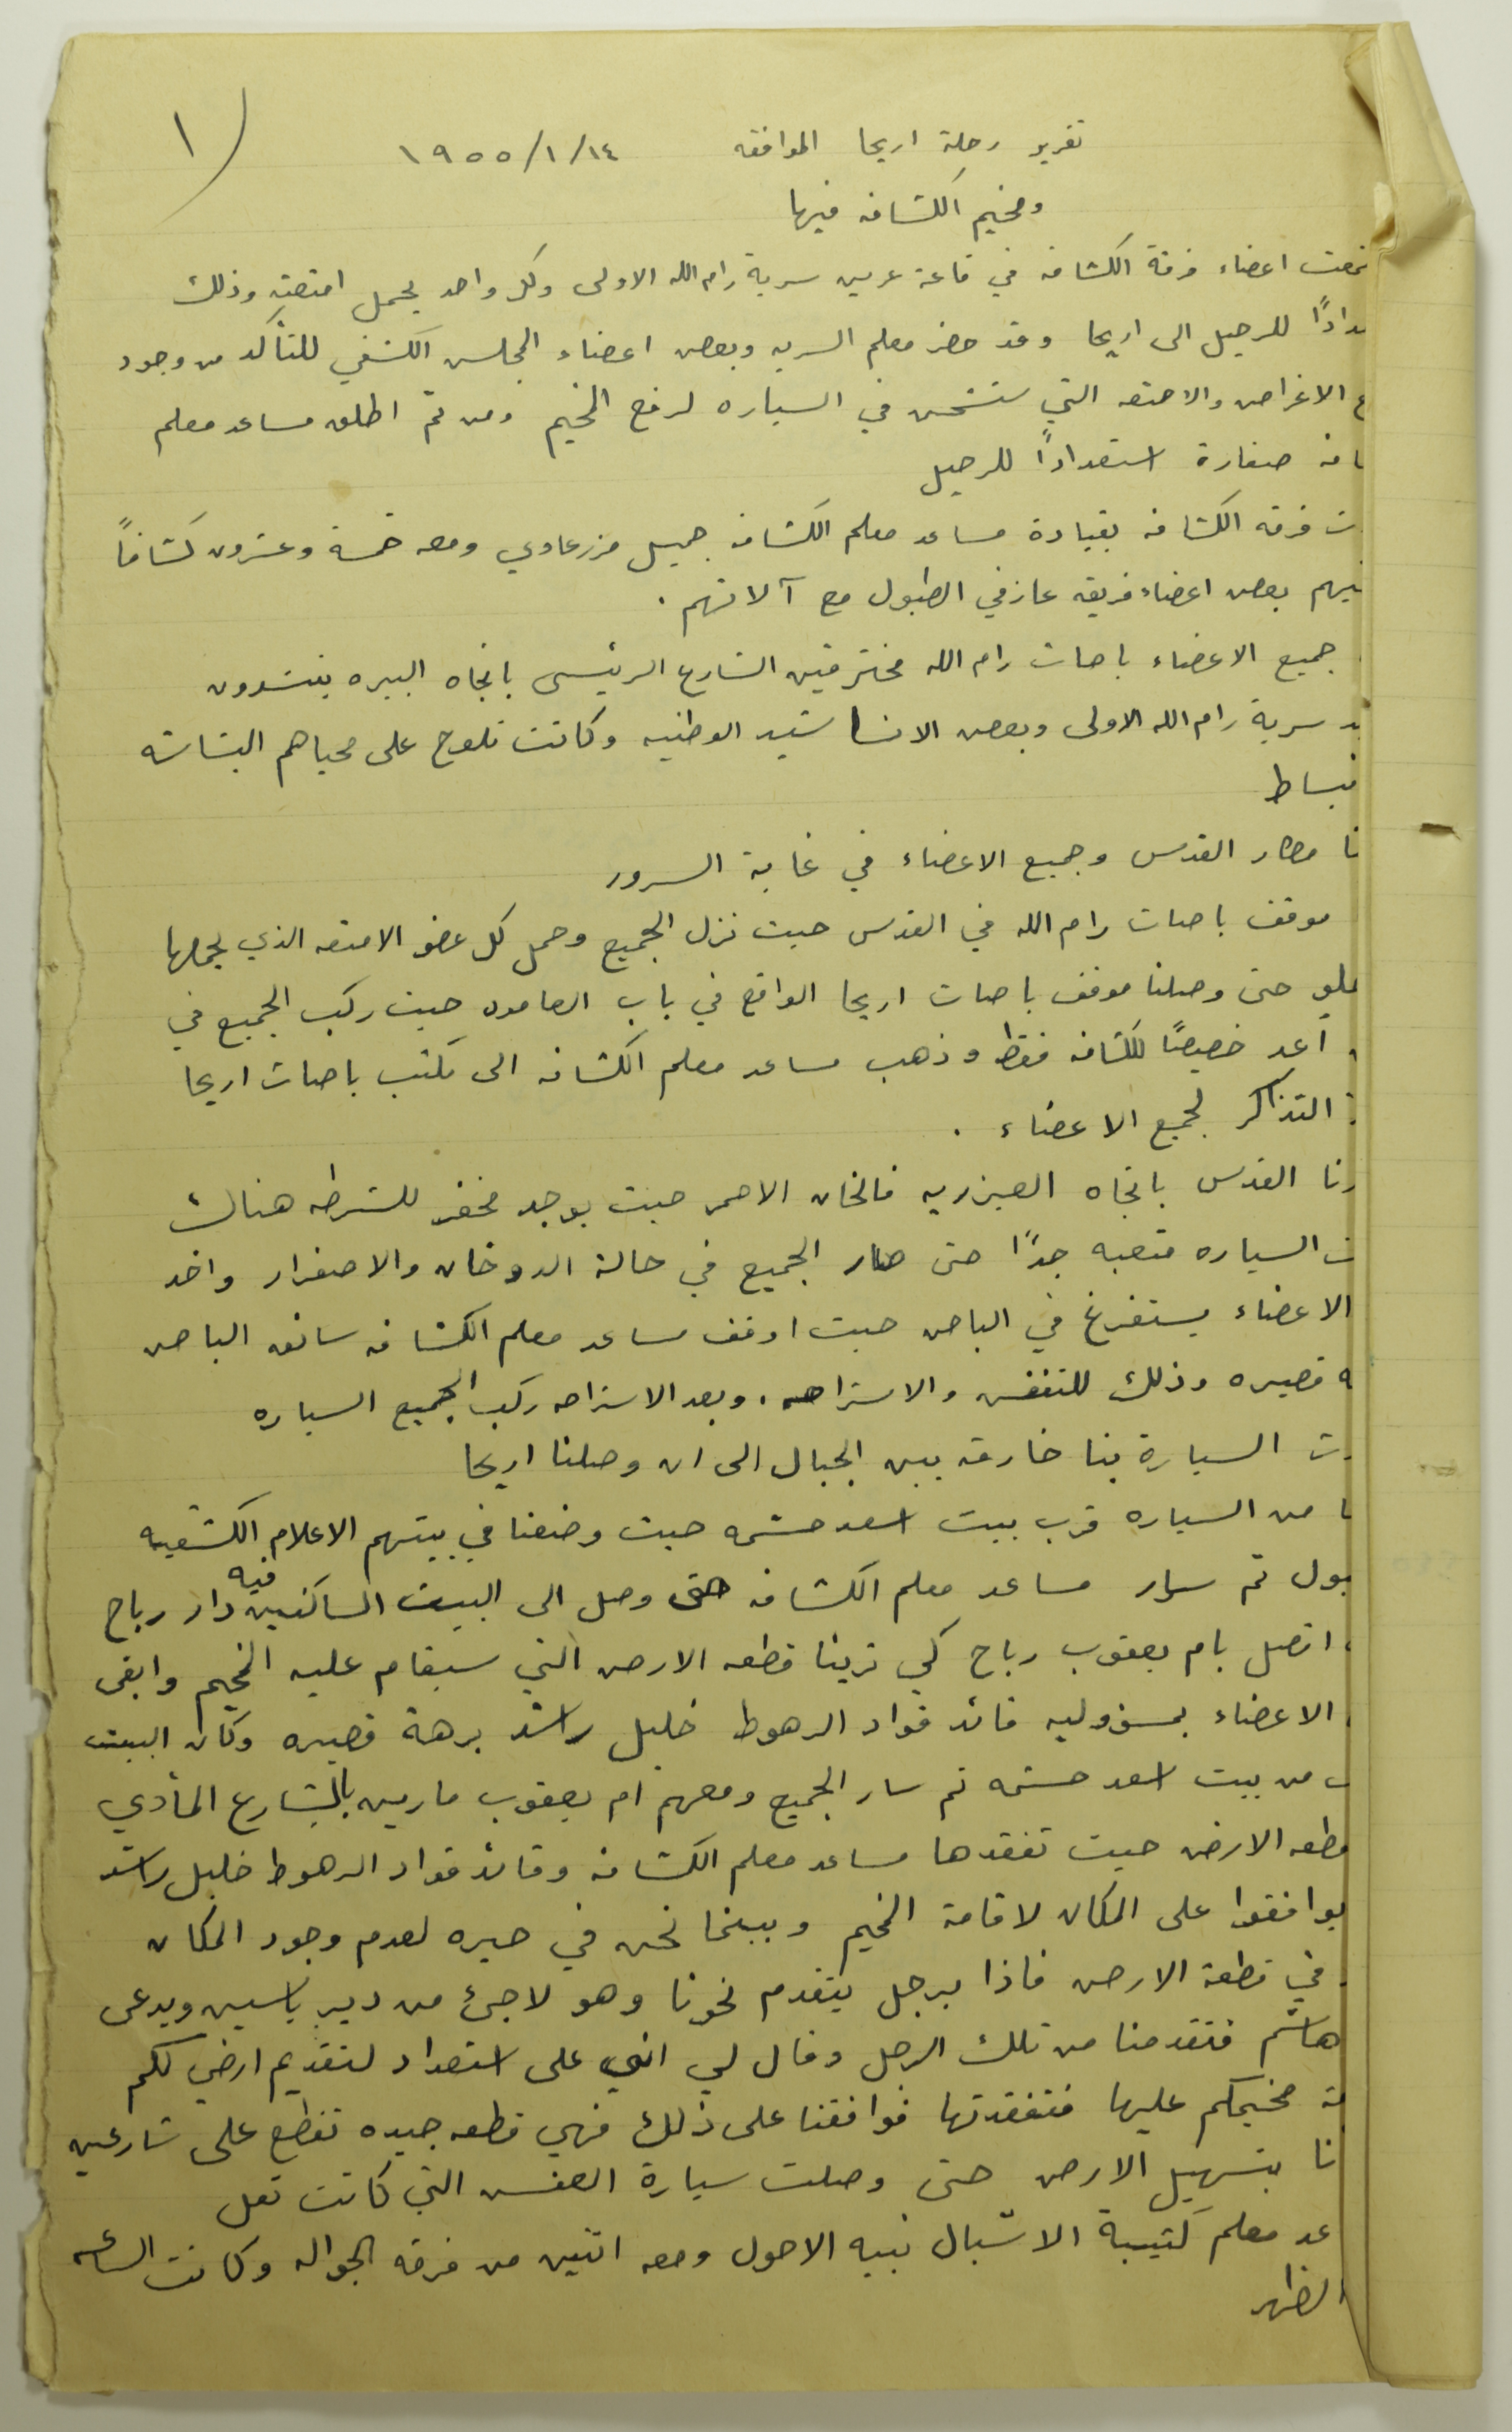 ١
تقرير رحلة اريحا الموافقه ١٤/١/١٩٥٥
ومخيم الكشافه فيها
تمعت اعضاء فرقة الكشافه في قاعة عرين سرية رام الله الاولى وكل واحد يحمل امتعته وذلك
دادًا للرحيل الى اريحا وقد حضر معلم السريه وبعض اعضاء المجلس الكشفي للتأكد من وجود
ع الاغراض والامتعه التي ستشحن في السياره لرفع المخيم ومن ثم اطلق مساعد معلم
افه صفارة استعدادًا للرحيل
ت فرقه الكشافه بقيادة مساعد معلم الكشافه جميل مزرعاوي ومعه خمسة وعشرون كشافاً
نيهم بعض اعضاء فريقه عازفي الطبول مع آلاتهم .
جميع الاعضاء باصات رام الله مخترقين الشارع الرئيسي باتجاه البيره ينشدون
يد سرية رام الله الاولى وبعض الاناشيد الوطنيه وكانت تلوح على محياهم البشاشه
نبساط
نا مطار القدس وجميع الاعضاء في غاية السرور
موقف باصات رام الله في القدس حيث نزل الجميع وحمل كل عضو الامتعه الذي يحملها
حتى وصلنا موقف باصات اريحا الواقع في باب العامود حيث ركب الجميع في
أعد خصيصًا للكشافه فقط وذهب مساعد معلم الكشافه الى مكتب باصات اريحا
التذاكر لجميع الاعضاء .
رنا القدس باتجاه العيزريه فالخان الاحمر حيث يوجد مخفر للشرطه هناك
ت السياره متعبه جدًا حتى صار الجميع في حالة الدوخان والاصفرار واخذ
الاعضاء يستفرغ في الباص حيث اوقف مساعد معلم الكشافه سائق الباص
ه قصيره وذلك للتنفس والاستراحه . وبعد الاستراحه ركب الجميع السياره
رت السيارة بنا خارقه بين الجبال الى ان وصلنا اريحا
ا من السياره قرب بيت اسعد حشمه حيث وضعنا في بيتهم الاعلام الكشفيه
بول ثم سار مساعد معلم الكشافه حتى وصل الى البيت الساكنين فيه دار رباح
اتصل بام يعقوب رباح كي ترينا قطعه الارض التي سيقام عليه المخيم وابقى
الاعضاء بمسؤوليه قائد قواد الرهوط خليل راشد برهة قصيره وكان البيت
ب من بيت اسعد حشمه ثم سار الجميع ومعهم ام يعقوب مارين بالشارع المأدي
قطعه الارض حيث تفقدها مساعد معلم الكشافه وقائد قواد الرهوط خليل راشد
يوافقوا على المكان لاقامة المخيم وبينما نحن في حيره لعدم وجود المكان
في قطعة الارض فاذا برجل يتقدم نحونا وهو لاجئ من دير ياسين ويدعى
هاشم فتقدمنا من تلك الرجل وقال لي اني على استعداد لتقديم ارضي لكم
مة مخيمكم عليها فتفقدتها فوافقنا على ذلك فهي قطعه جيده تقطع على شارعين
نا بتسهيل الارض حتى وصلت سيارة العفش التي كانت تقل
عد معلم كتيبة الاشبال نبيه الاحول ومعه اثنين من فرقه الجواله وكانت الساعه
الظهر